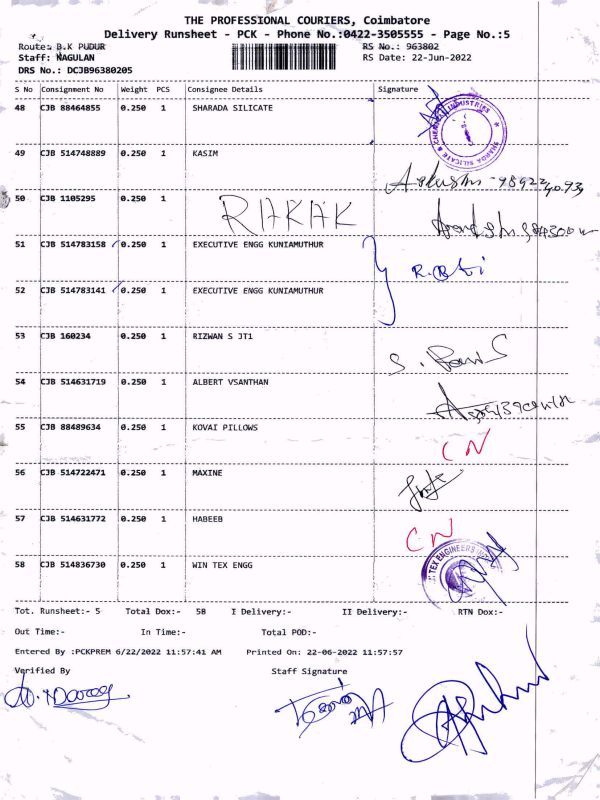 THE PROFESSIONAL COURIERS, Coimbatore
Delivery Runsheet - PCK - Phone No.:0422-3505555 - Page No.:5
Route: B.K PUDUR
RS No.: 963802
Staff: NAGULAN
RS Date: 22-Jun-2022
DRS No.: DCJB96380205
S No Consignment No Weight PCS Consignee Details Signature
48 CJB 88464855 0.250 1 SHARADA SILICATE
SHARDA SILICATE & CHEMICAL INDUSTRIES
49 CJB 514748889 0.250 1 KASIM
50 CJB 1105295 0.250 1 RAKAK
51 CJB 514783158 0.250 1 EXECUTIVE ENGG KUNIAMUTHUR
52 CJB 514783141 0.250 1 EXECUTIVE ENGG KUNIAMUTHUR
53 CJB 160234 0.250 1 RIZWAN S JT1
54 CJB 514631719 0.250 1 ALBERT VSANTHAN
55 CJB 88489634 0.250 1 KOVAI PILLOWS CN
56 CJB 514722471 0.250 1 MAXINE
57 CJB 514631772 0.250 1 HABEEB CN
58 CJB 514836730 0.250 1 WIN TEX ENGG
TEX ENGINEERS
Tot. Runsheet:- 5 Total Dox:- 58 I Delivery:- II Delivery:- RTN Dox:-
Out Time:- In Time:- Total POD:-
Entered By :PCKPREM 6/22/2022 11:57:41 AM Printed On: 22-06-2022 11:57:57
Verified By Staff Signature